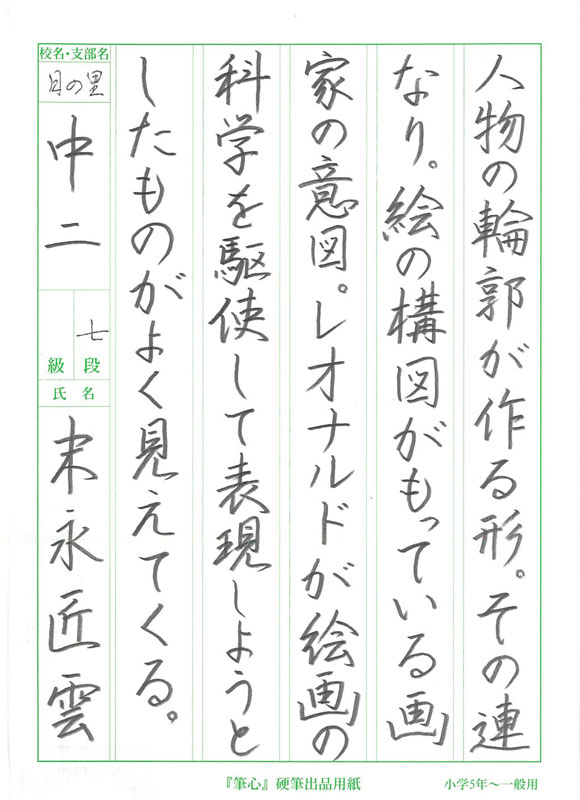 人物の輪郭が作る形。その連
なり。絵の構図がもっている画
家の意図。レオナルドが絵画の
科学を駆使して表現しようと
したものがよく見えてくる。
校名・支部名
月の里
中二
七
級 段
氏名
末永匠雲
『筆心』硬筆出品用紙
小学5年〜一般用